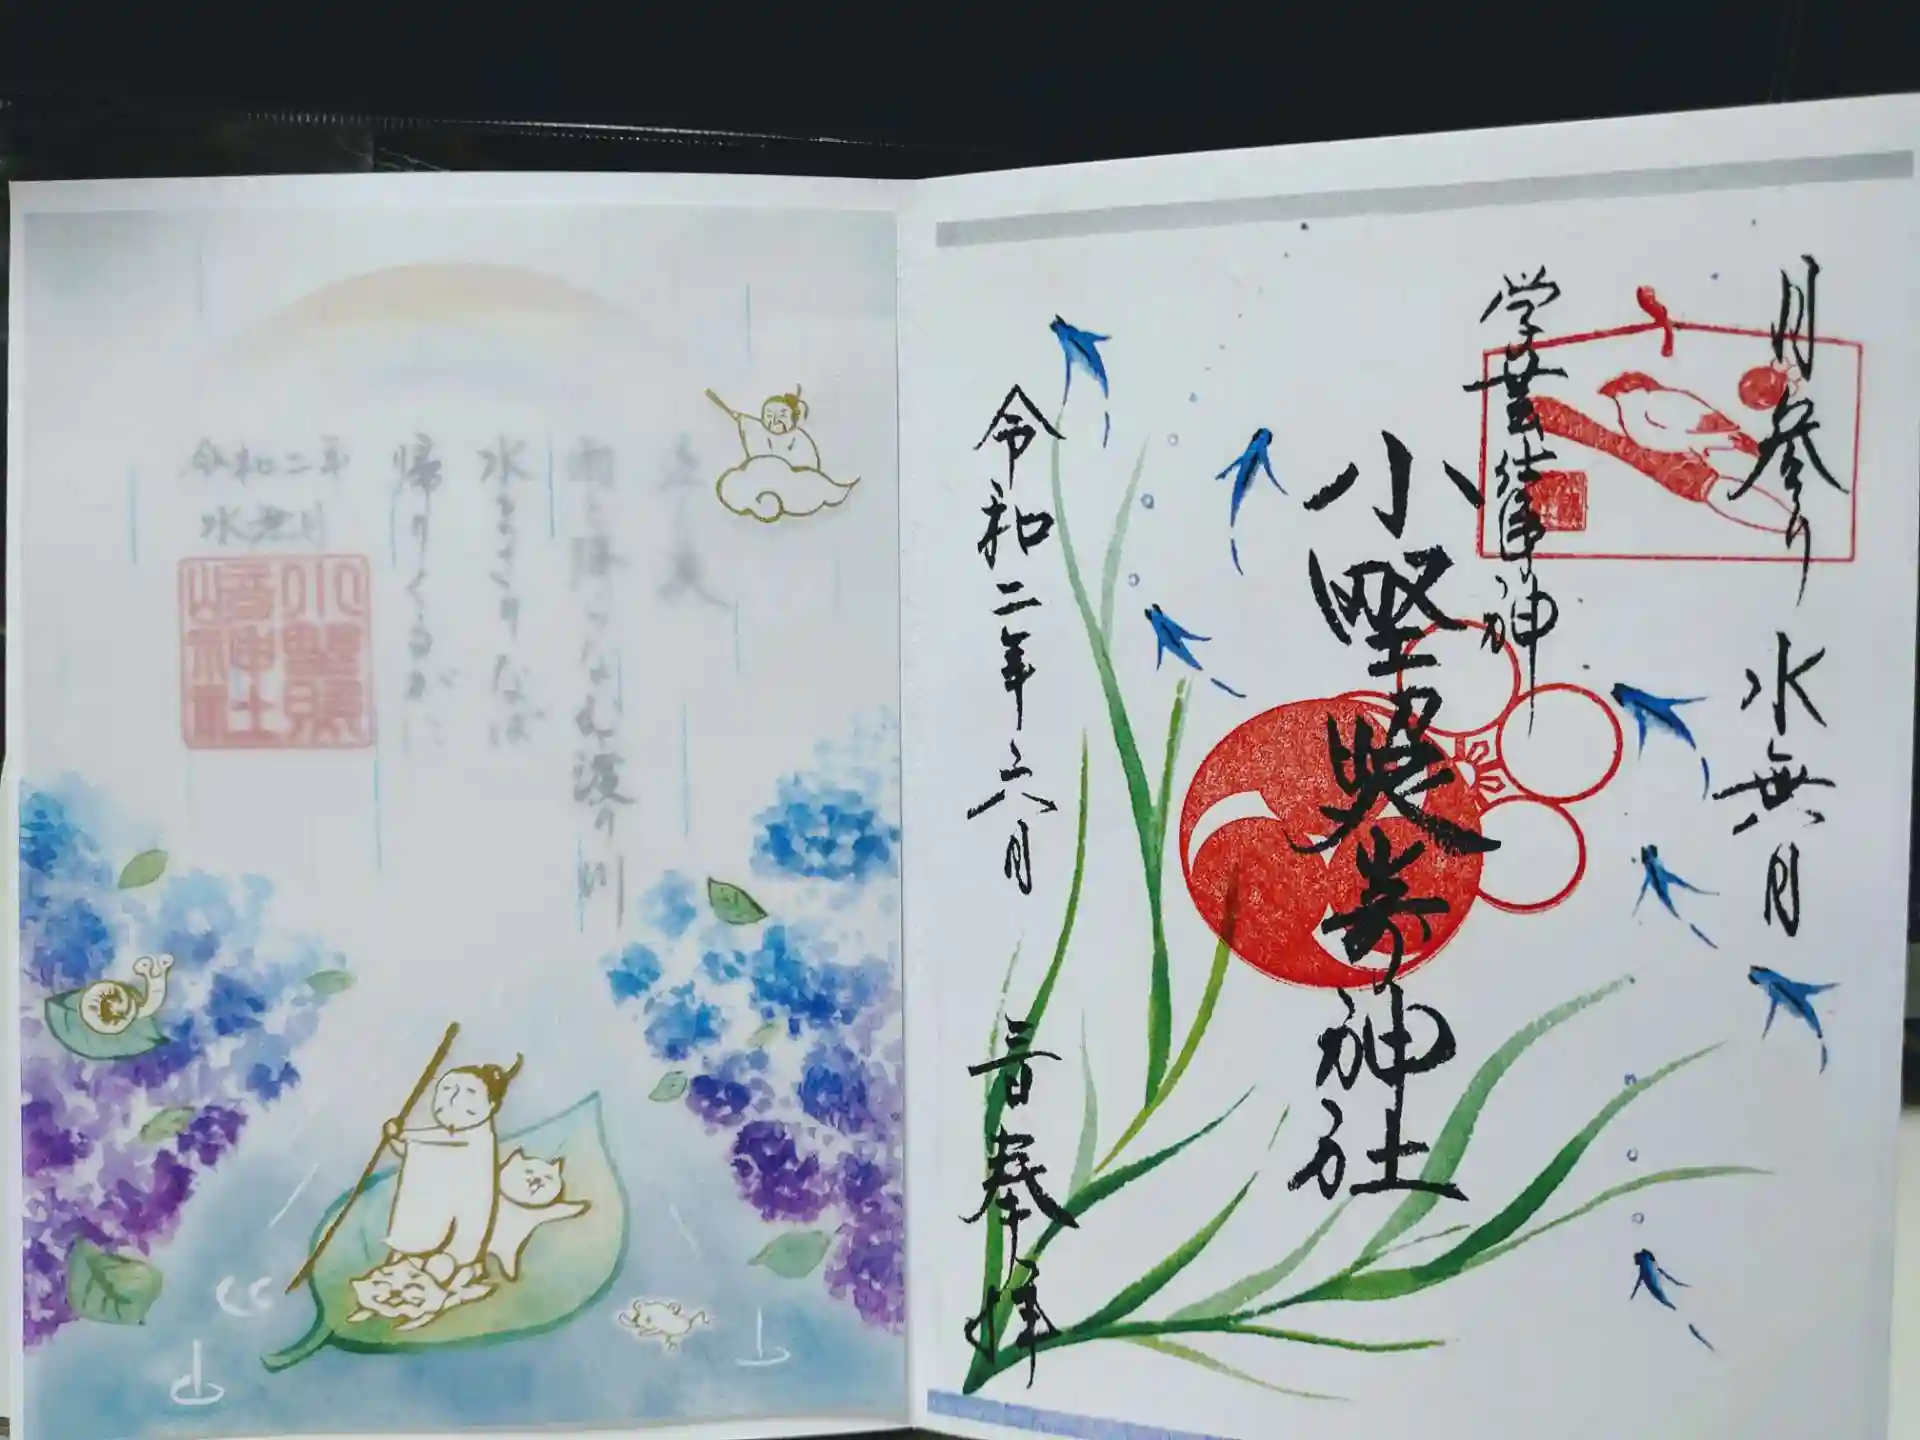 月参り 水無月
学芸仕事神
小墅照崎神社
令和二年六月
奉拝
泣く涙
雨と降らなむ渡り川
水まさりなば
帰りくるがに
令和二年
水無月
小墅照
崎神社